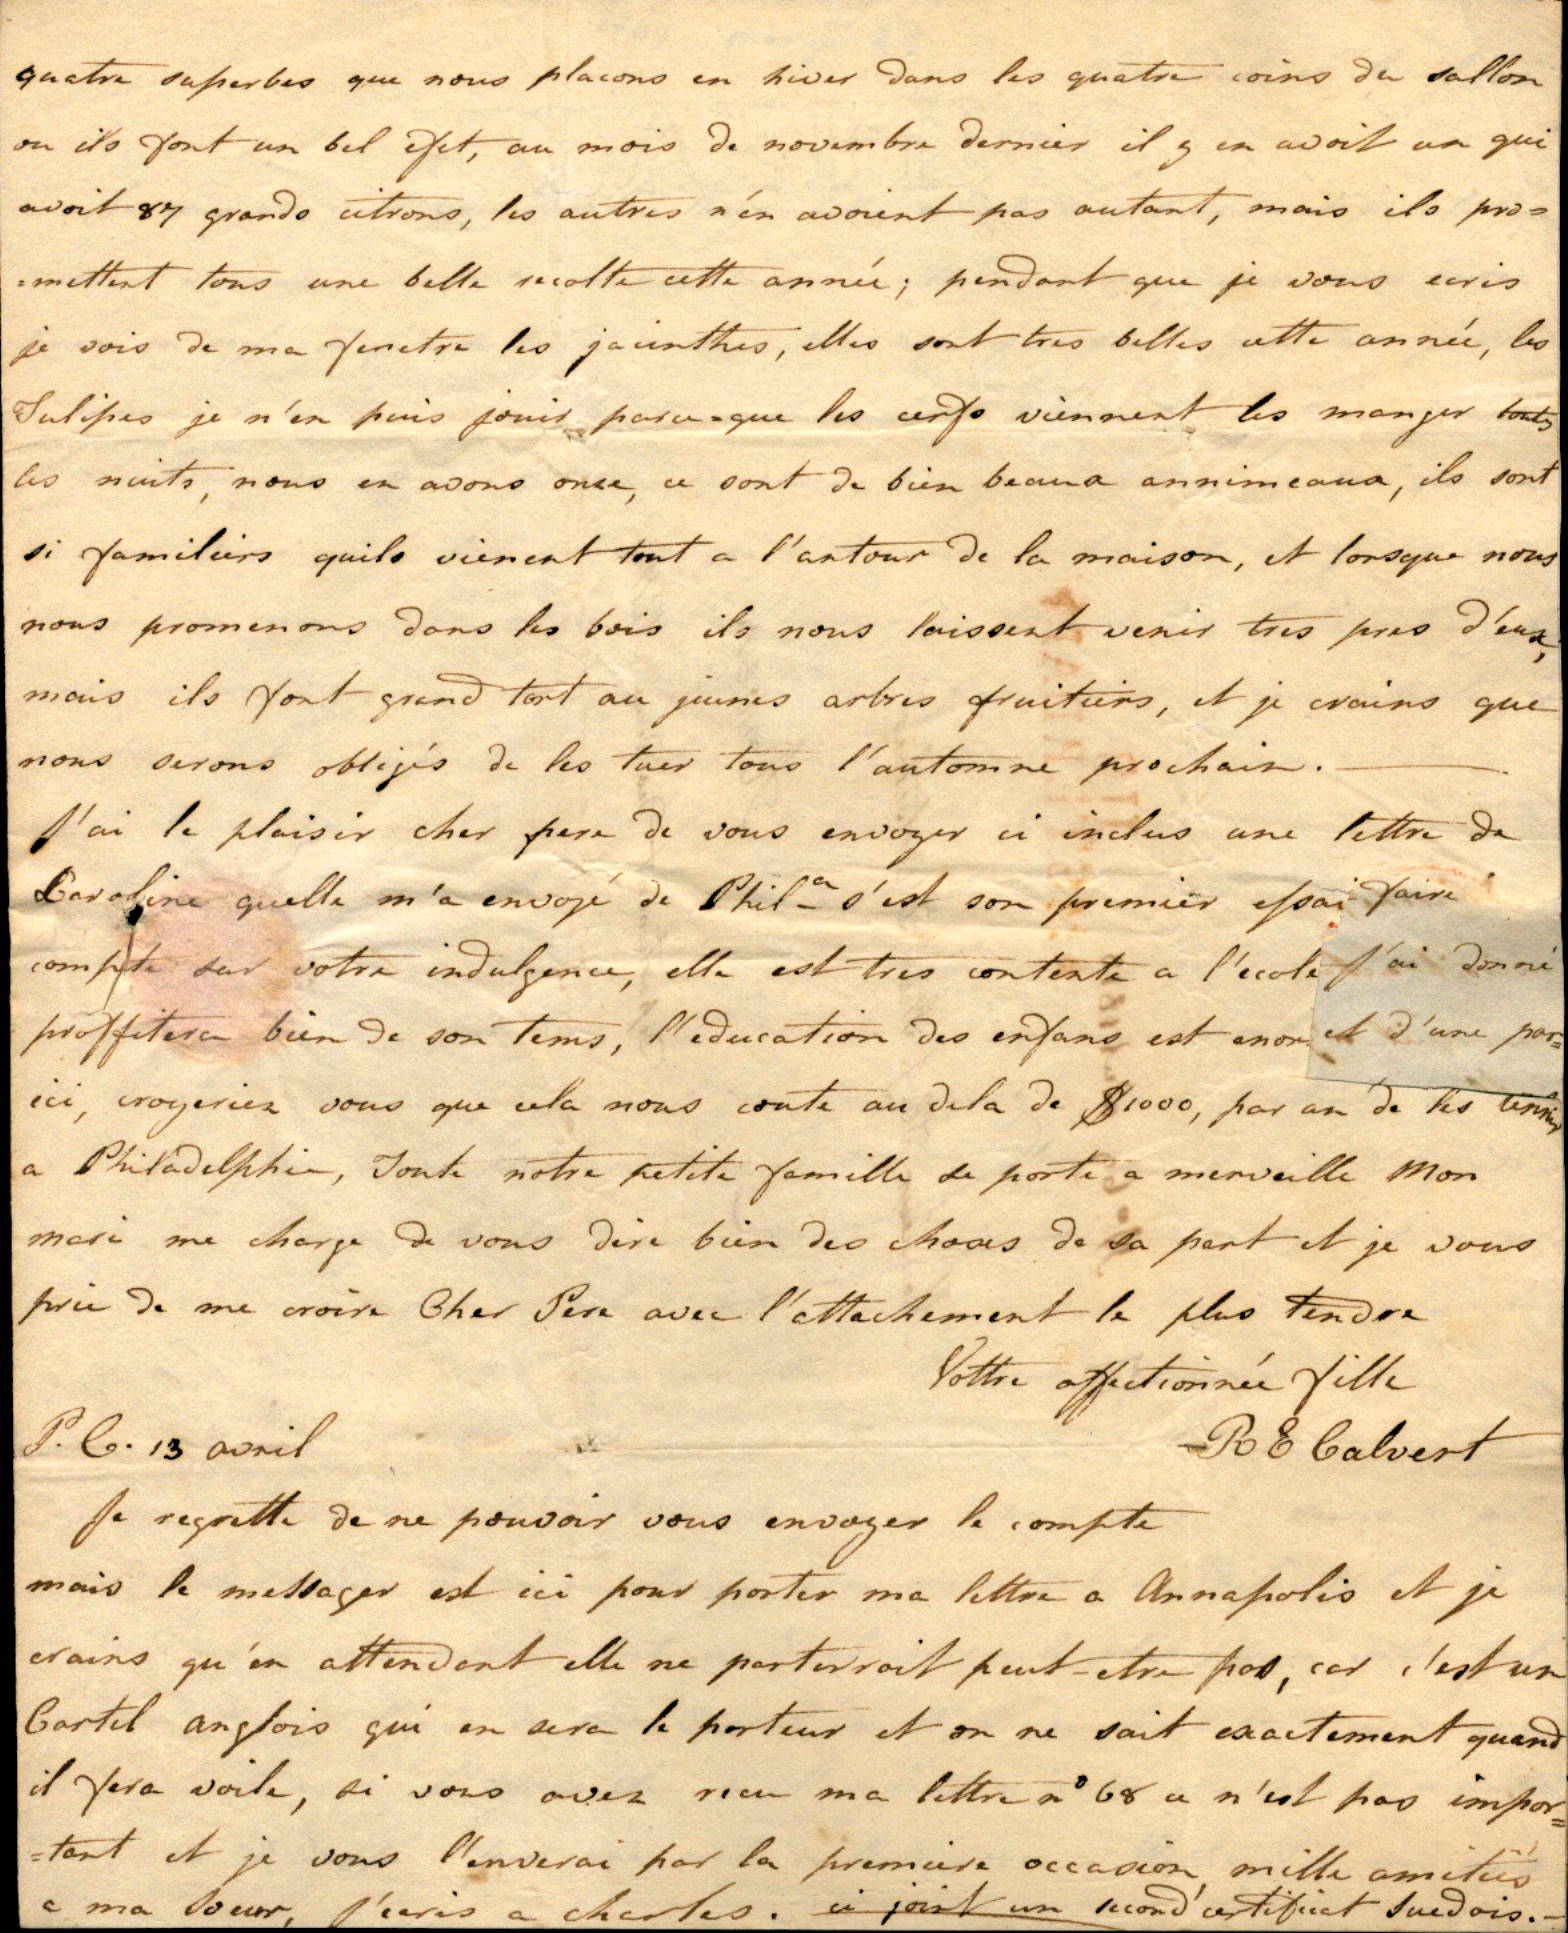 quatre superbes que nous placons en hiver dans les quatre coins du sallon
ou ils font un bel effet, au mois de novembre dernier il y en avoit un qui
avoit 87 grands citrons, les autres n'en avoient pas autant, mais ils pro=
=mettent tous une belle recolte cette année; pendant que je vous ecris
je vois de ma fenetre les jacinthes, elles sont tres belles cette année, les
Tulipes je n'en puis jouir parce-que les cerfs viennent les manger touts
les nuits, nous en avons onze, ce sont de bien beaux annimeaux, ils sont
si familiers quils vienent tout a l'antour de la maison, et lorsque nous
nous promenons dans les bois ils nous laissent venir tres pres d'eux,
mais ils font grand tort au jeunes arbres fruitiers, et je crains que
nous serons obligés de les tuer tous l'automne prochain. —
J'ai le plaisir cher pere de vous envoyer ci inclus une lettre de
Caroline quelle m'a envoyé de Phil.a s'est son premier essai faire
compte sur votre indulgence, elle est tres contente a l'ecole J'ai donné
proffitera bien de son tems, l'education des enfans est enor et d'une par=
ici, croyeriez vous que cela nous coute au dela de $1000, par an de les tennir
a Philadelphie, Toute notre petite famille se porte a merveille Mon
mari me charge de vous dire bien des choses de sa part et je vous
prie de me croire Cher Pere avec l'attachement le plus tendre
Vottre affectionnée fille
P. C. 13 avril R E Calvert
Je regrette de ne pouvoir vous envoyer le compte
mais le messager est ici pour porter ma lettre a Annapolis et je
crains qu'en attendant elle ne parterroit peut-etre pas, car c'est un
Cartel anglois qui en sera le porteur et on ne sait exactement quand
il fera voile, si vous avez recu ma lettre n° 68 ce n'est pas impor=
=tant et je vous l'enverai par la premiere occasion mille amitiés
a ma Soeur, j'ecris a charles. ci joint un second certificat Suedois.—